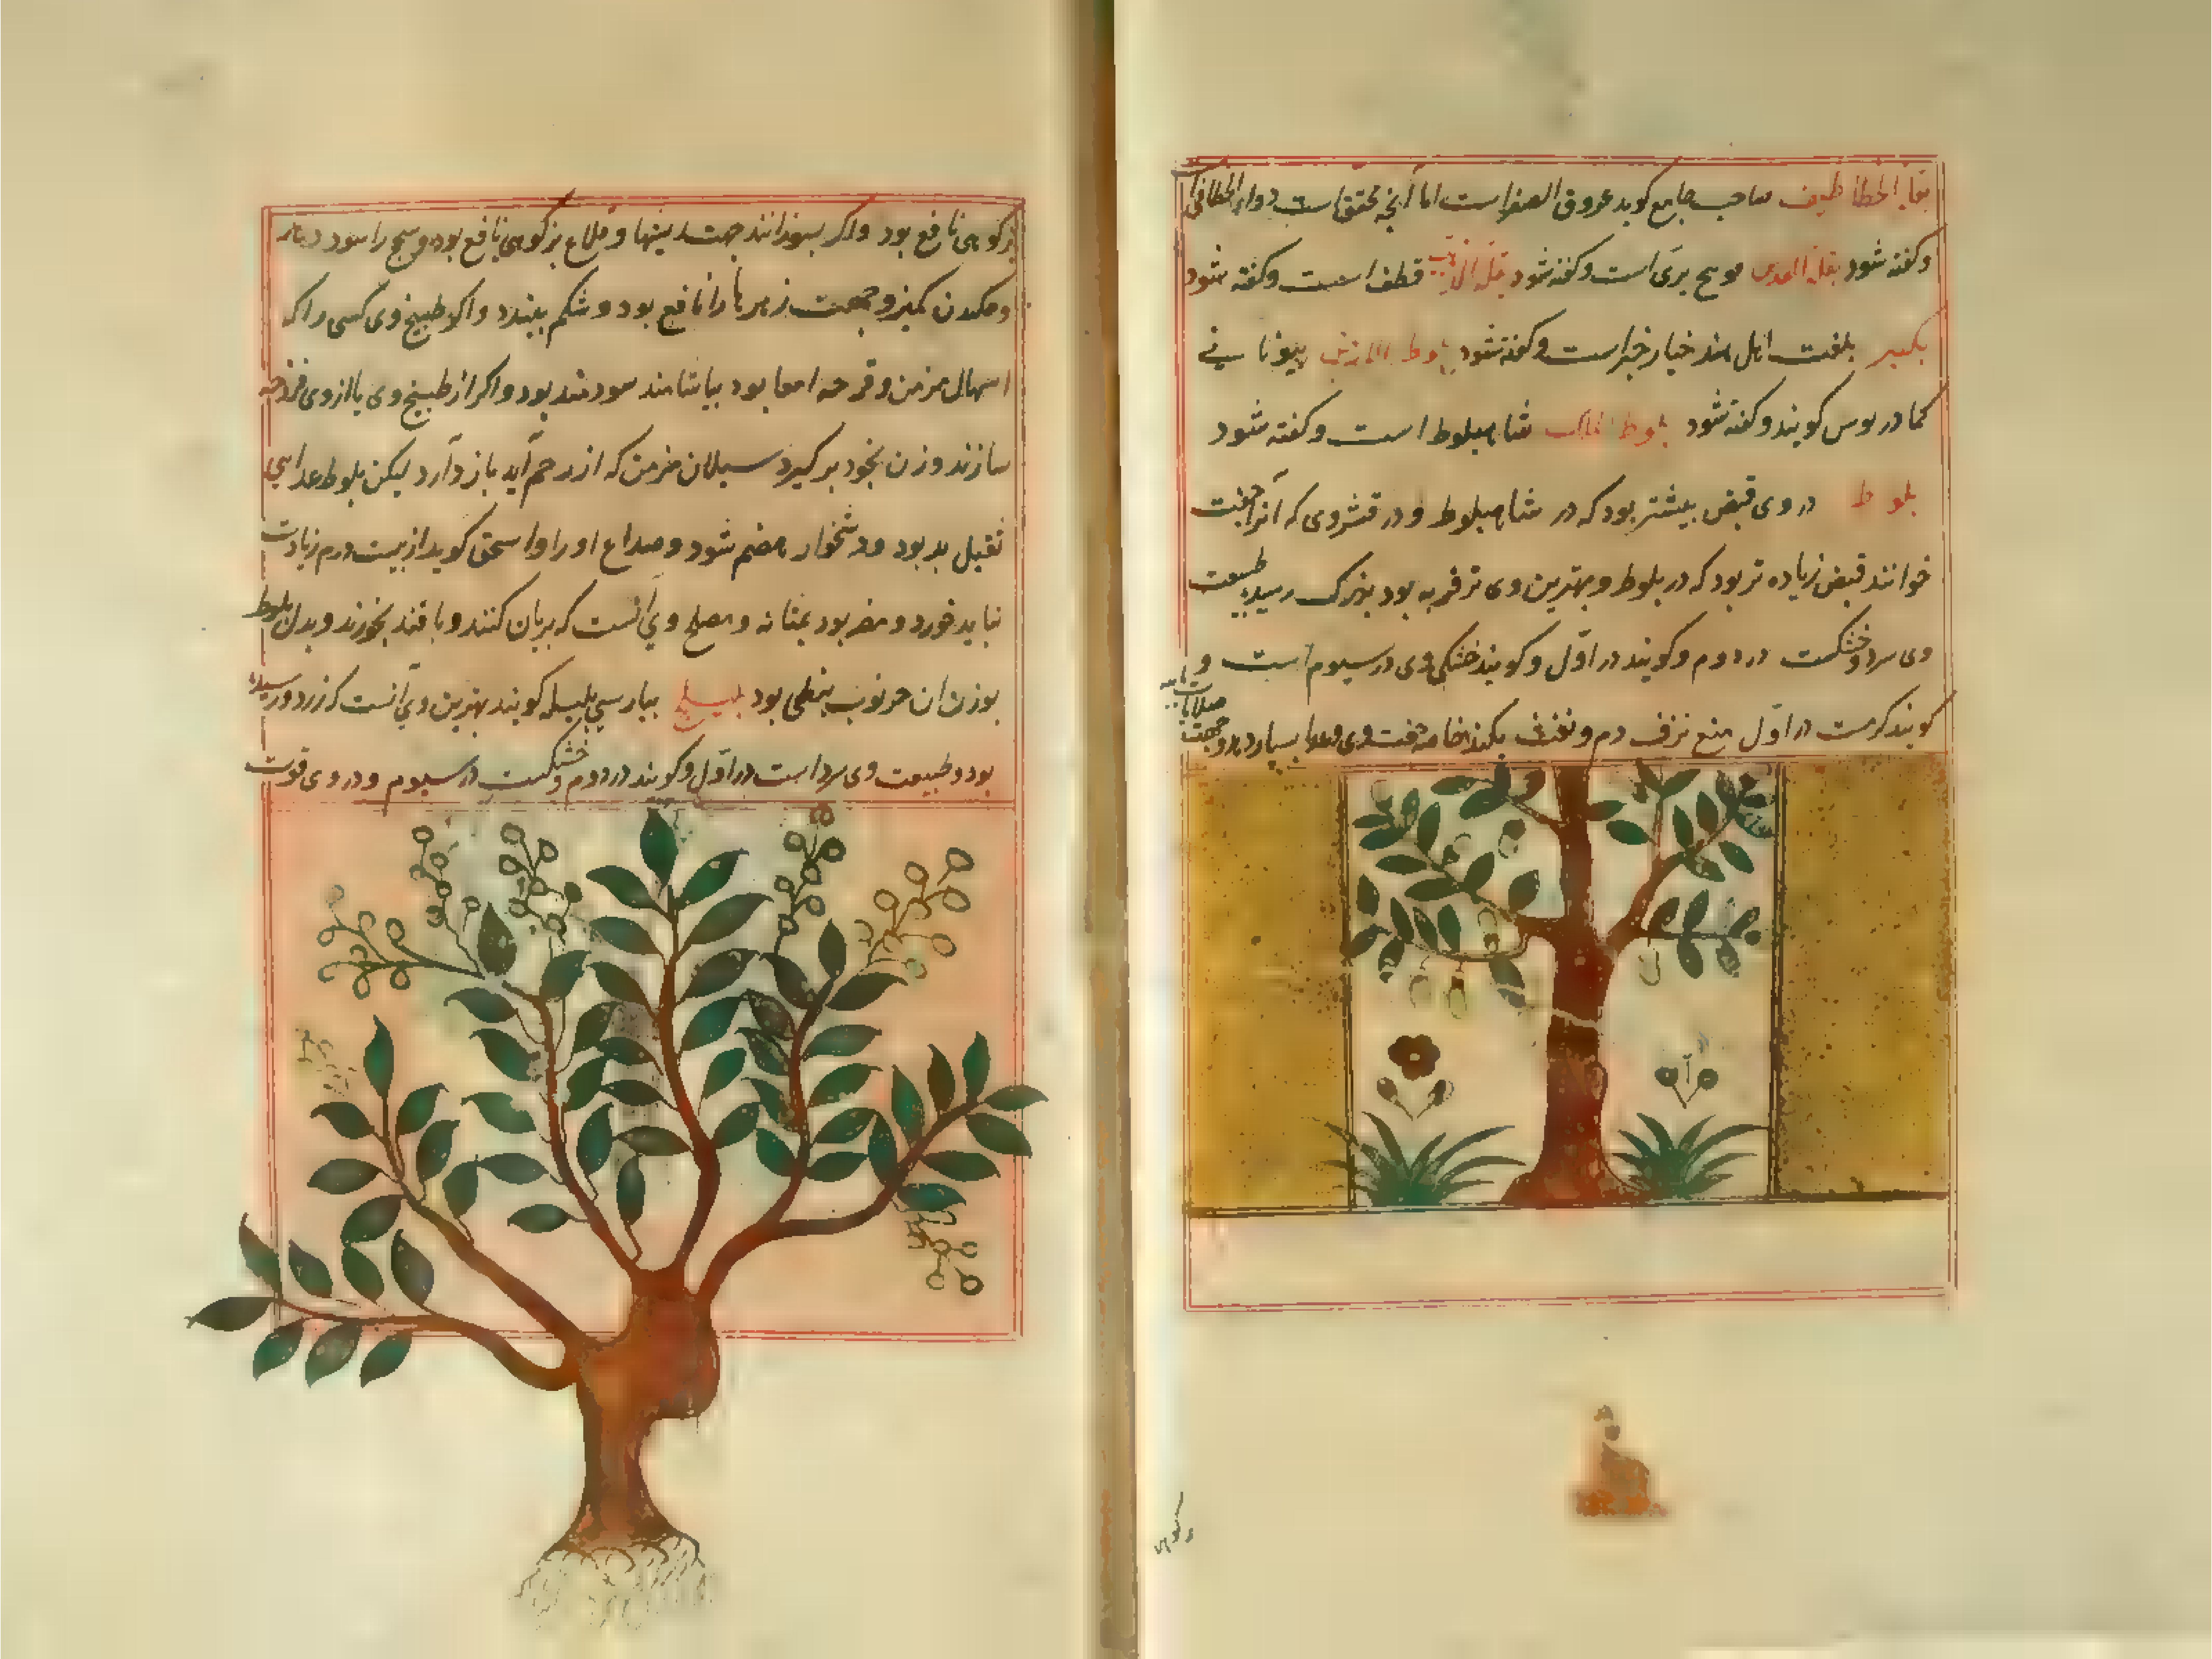 صاحب جامع کوید عروق الصفراست اما آنچه محقق است دواء الخطاطیف
وکفته شود بقلة العدس فوتنج بری است وکفته شود بقلة الذهب قطف است وکفته شود
بکبر بلغت اهل هند خیار خبر است وکفته شود بلوط الارض بیونانی
کمادریوس کویند وکفته شود بلوط الملک شاهبلوط است وکفته شود
بلوط در وی قبض بیشتر بود که در شاهبلوط و در قشر وی که آنرا جفت
خوانند قبض زیاده تر بود که در بلوط و بهترین وی تر فربه بود بزرک رسیده طبیعت
وی سرد و خشکست در دوم وکویند در اول وکویند خشکی وی در سیوم است و
کویند کرمست در اول منع نزف دم و نفث بکند خاصه جفت وی
صلابات
وجهت
بزکوهی نافع بود واکر بسوزانند جهت و قلاع بزکوهی نافع بود وسحج را سود دهد
وجهت زهرها را نافع بود و شکم ببندد واکر طبیخ وی کسی را که
اسهال مزمن و قرحه امعا بود بیاشامند سودمند بود واکر از طبیخ وی یا از وی فرزجه
سازند وزن بخود برکیرد سیلان مزمن که از رحم آید باز دارد لیکن بلوط
ثقیل بد بود ودشخوار هضم شود وصداع آورد واسحق کوید از بیست درم زیادت
نباید خورد ومضر بود بمثانه ومصلح وی آنست که بریان کنند وبا قند بخورند وبدل بلوط
بوزن آن خرنوب نبطی بود بلیلج بپارسی بلیله کویند بهترین وی آنست که زرد ورسیده
بود وطبیعت وی سرد است در اول وکویند در دوم وخشکست در سیوم ودر وی قوت